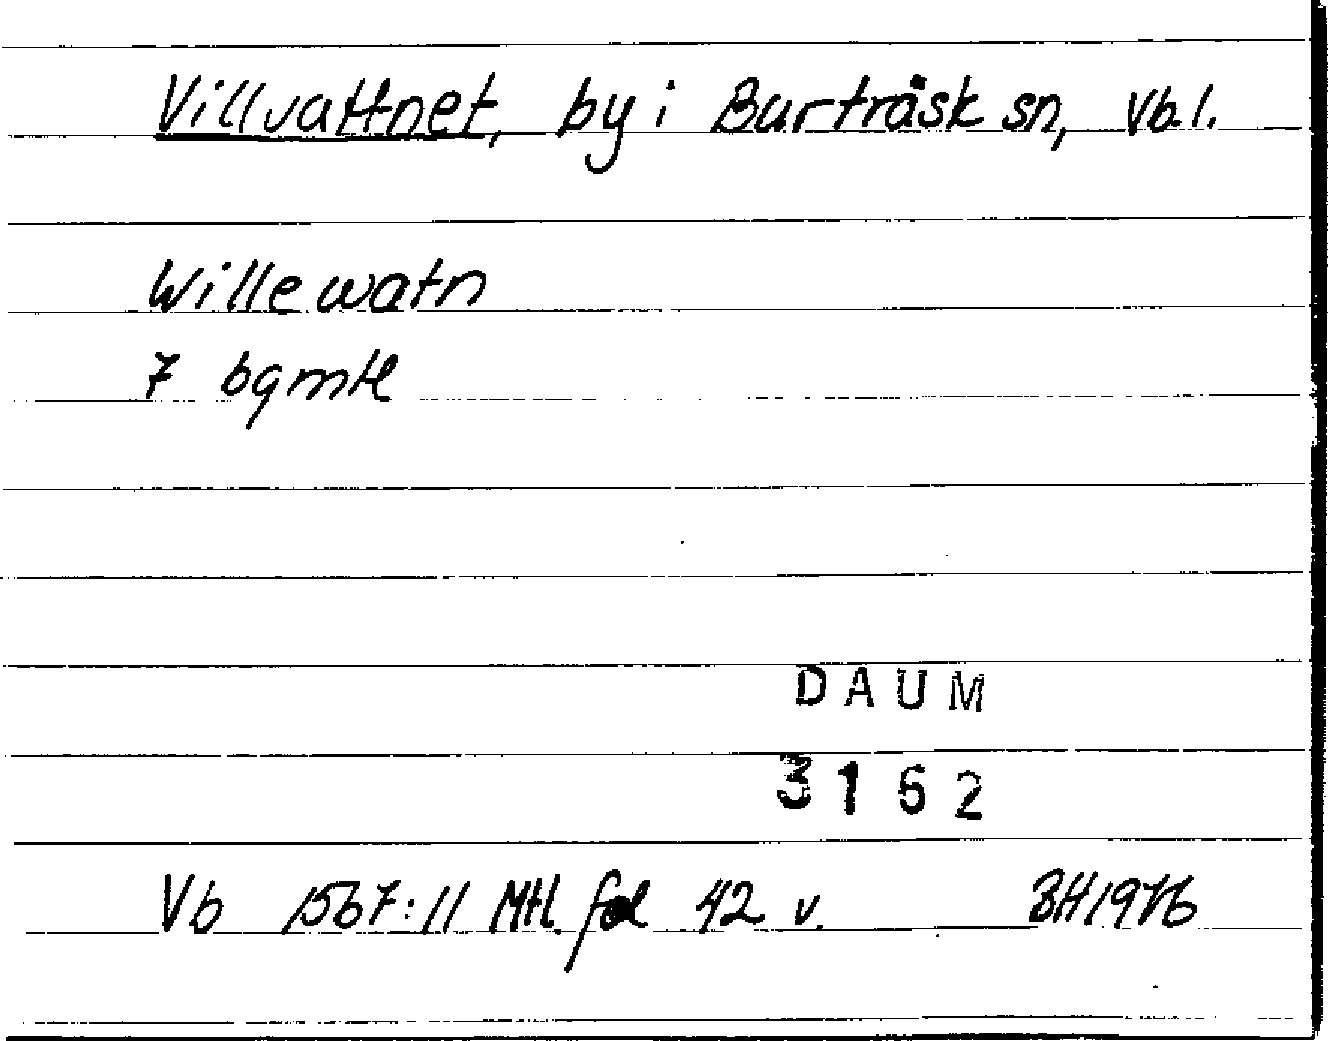 Villvattnet, by i Burträsk sn, Vb.l.
Willewatn
7 bgmtl
DAUM
3162
Vb 1567:11 Mtl. fol 42 v. BH1976